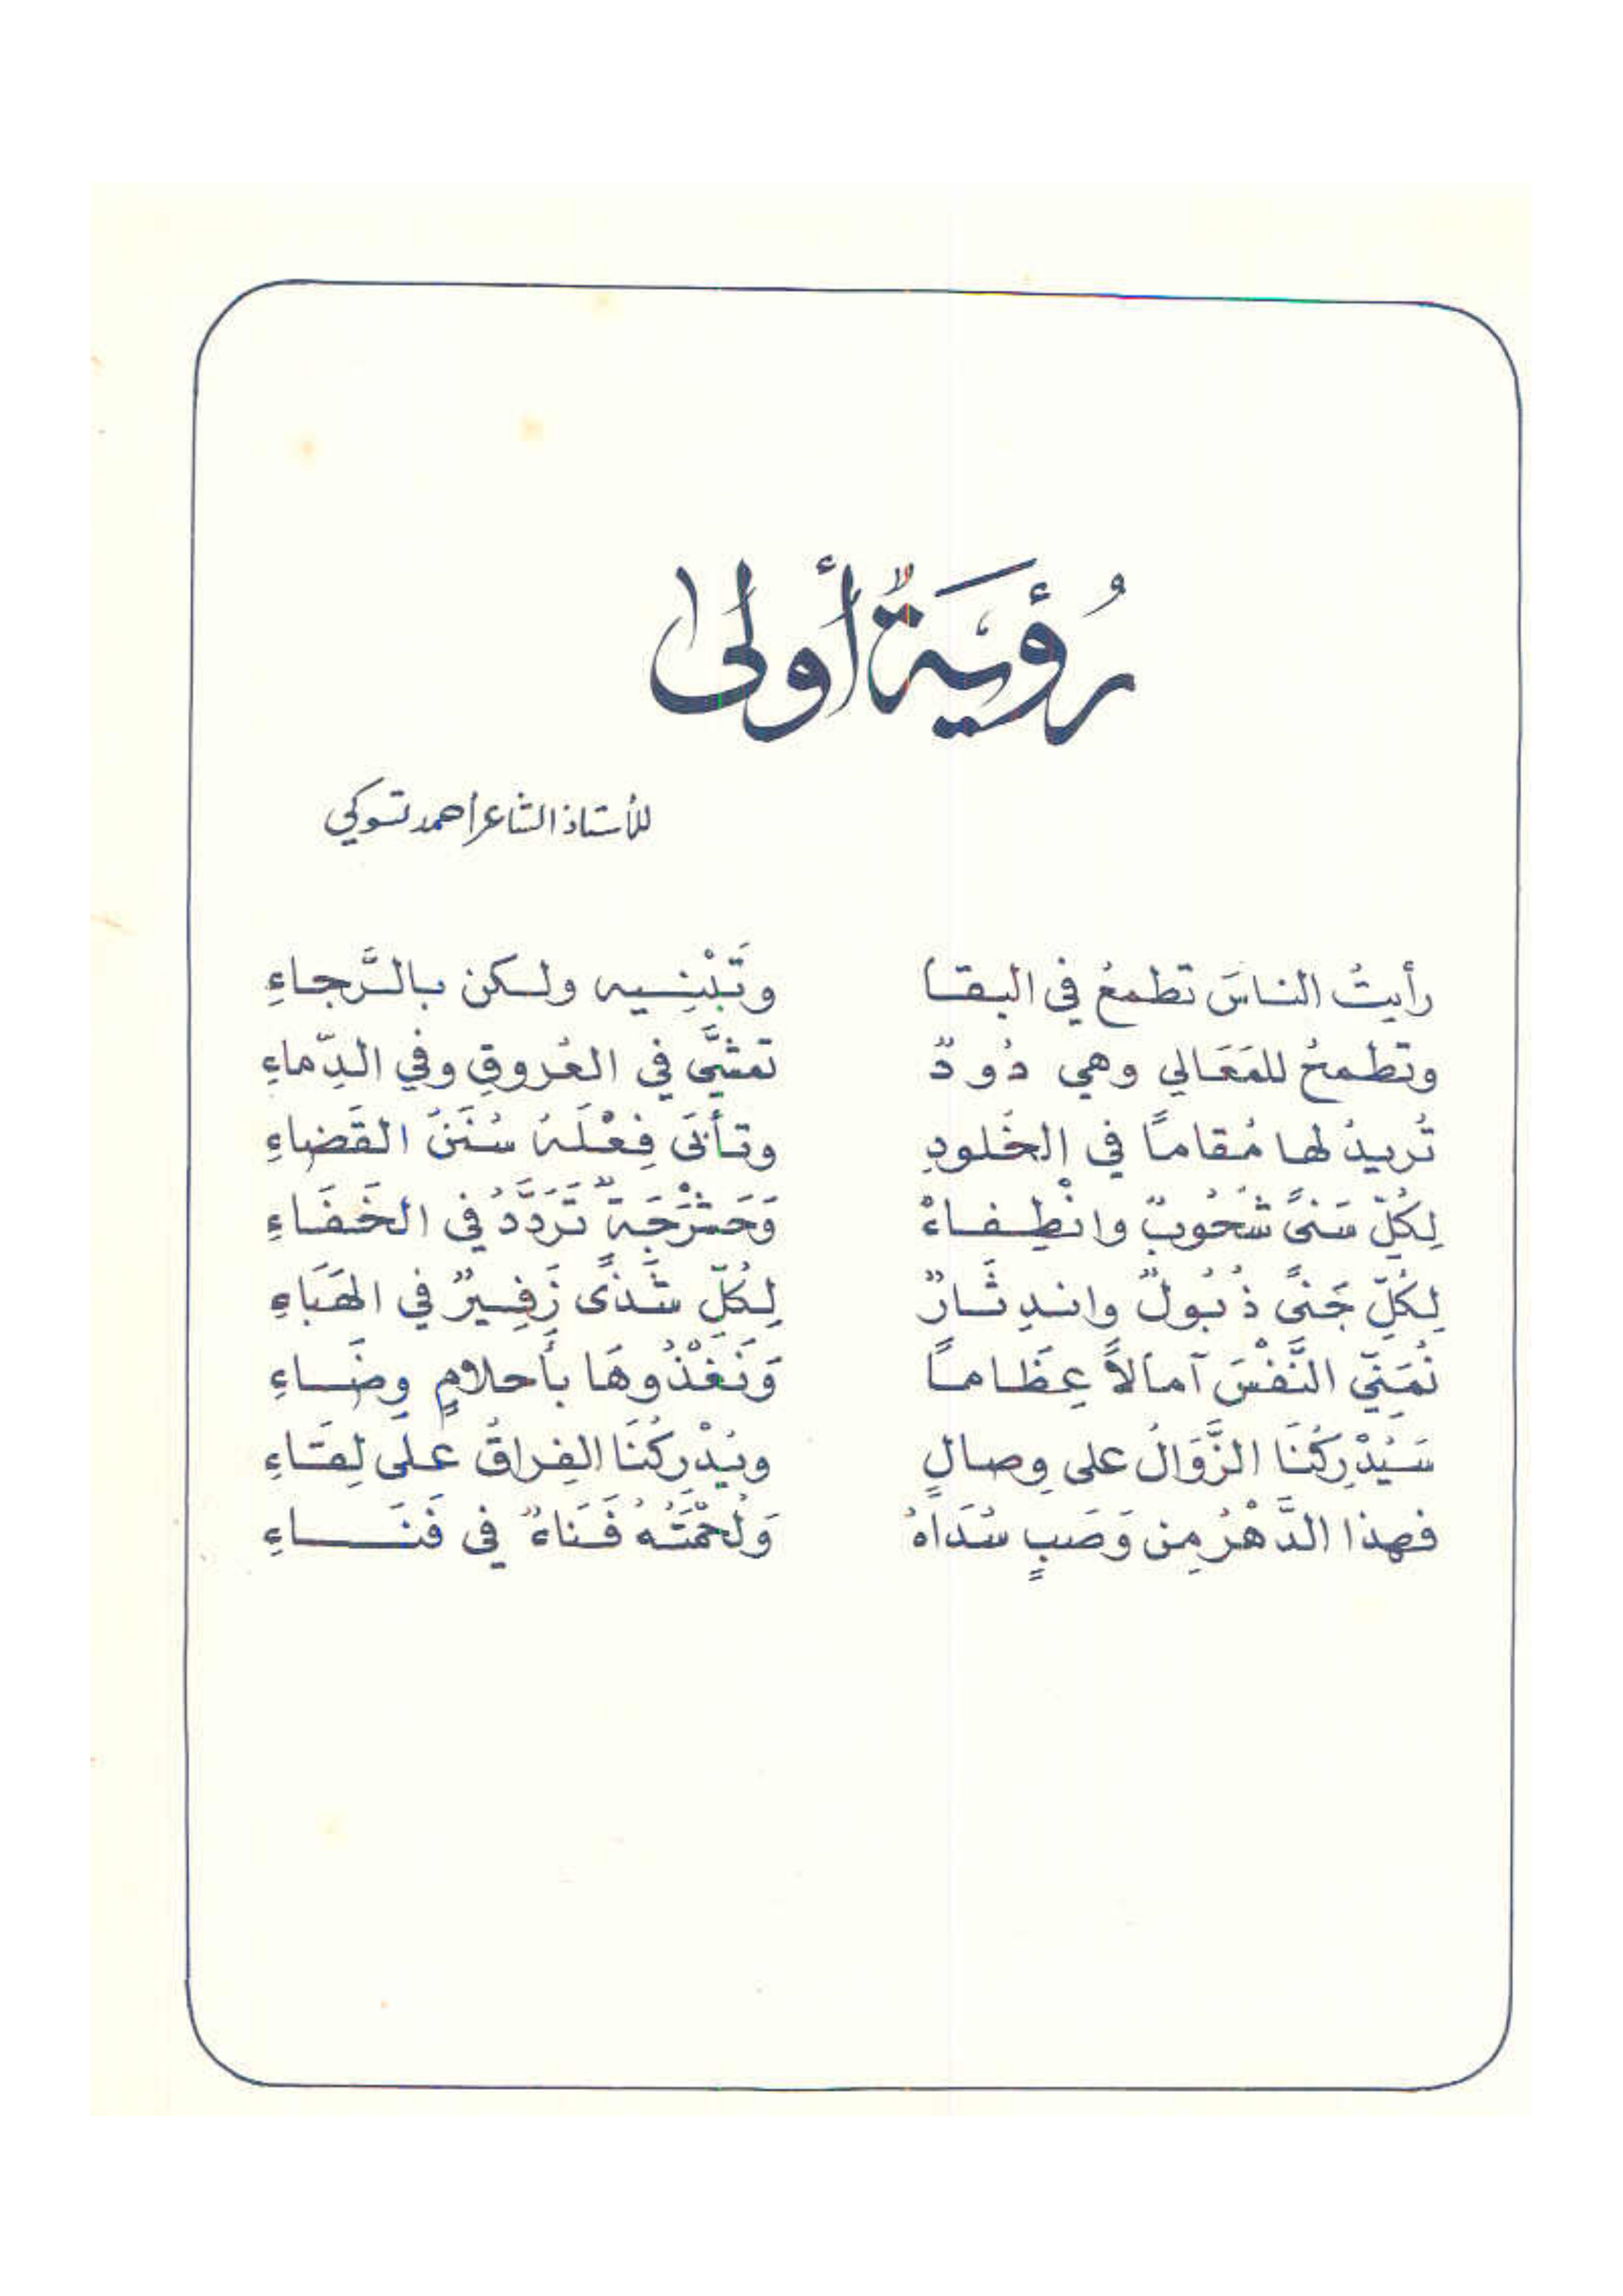 رُؤْيَةٌ أُولى
للأستاذ الشاعر أحمد تسوكي
رأيتُ الناسَ تطمعُ في البقا وتَبْنِيه ولكن بالرَّجاءِ
وتطمحُ للمَعَالي وهي دُودٌ تمشَّى في العُروقِ وفي الدِّماءِ
تُريدُ لها مُقامًا في الخُلودِ وتأبَى فِعْلَهُ سُنَنُ القَضاءِ
لِكُلِّ سَنىً شُحُوبٌ وانْطِفاءْ وَحَشْرَجَةٌ تَرَدَّدُ في الخَفَاءِ
لِكُلِّ جَنىً ذُبُولٌ واندِثَارٌ لِكُلِّ شَذىً زَفِيرٌ في الهَبَاءِ
نُمَنِّي النَّفْسَ آمالاً عِظَامًا وَنَغْذُوهَا بأَحلامٍ وِضَاءِ
سَيُدْرِكُنَا الزَّوَالُ على وِصالٍ ويُدْرِكُنَا الفِراقُ عَلَى لِقَاءِ
فهذا الدَّهْرُ مِن وَصَبٍ سُدَاهُ وَلُحْمَتُهُ فَنَاءٌ في فَنَاءِ